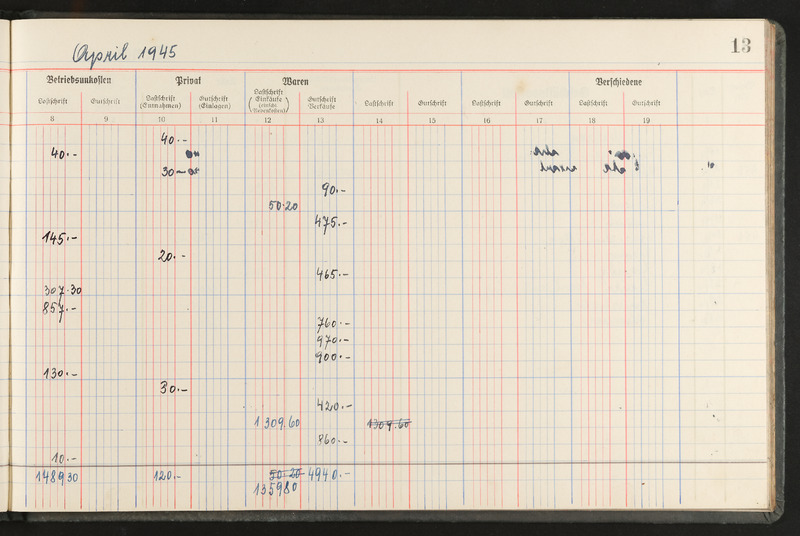 13
April 1945
Betriebsunkosten Privat Waren Verschiedene
Lastschrift Gutschrift Lastschrift (Entnahmen) Gutschrift (Einlagen) Lastschrift (Einkäufe) Gutschrift Verkäufe Lastschrift Gutschrift Lastschrift Gutschrift Lastschrift Gutschrift
8 9 10 11 12 13 14 15 16 17 18 19
40.-
40.-
30-
90.-
50.20
475.-
145.-
20.-
465.-
307.30
857.-
760.-
970.-
900.-
130.-
30.-
420.-
1309.60 1309.60
860.-
10.-
148930 120.- 50.20 4940.-
135980